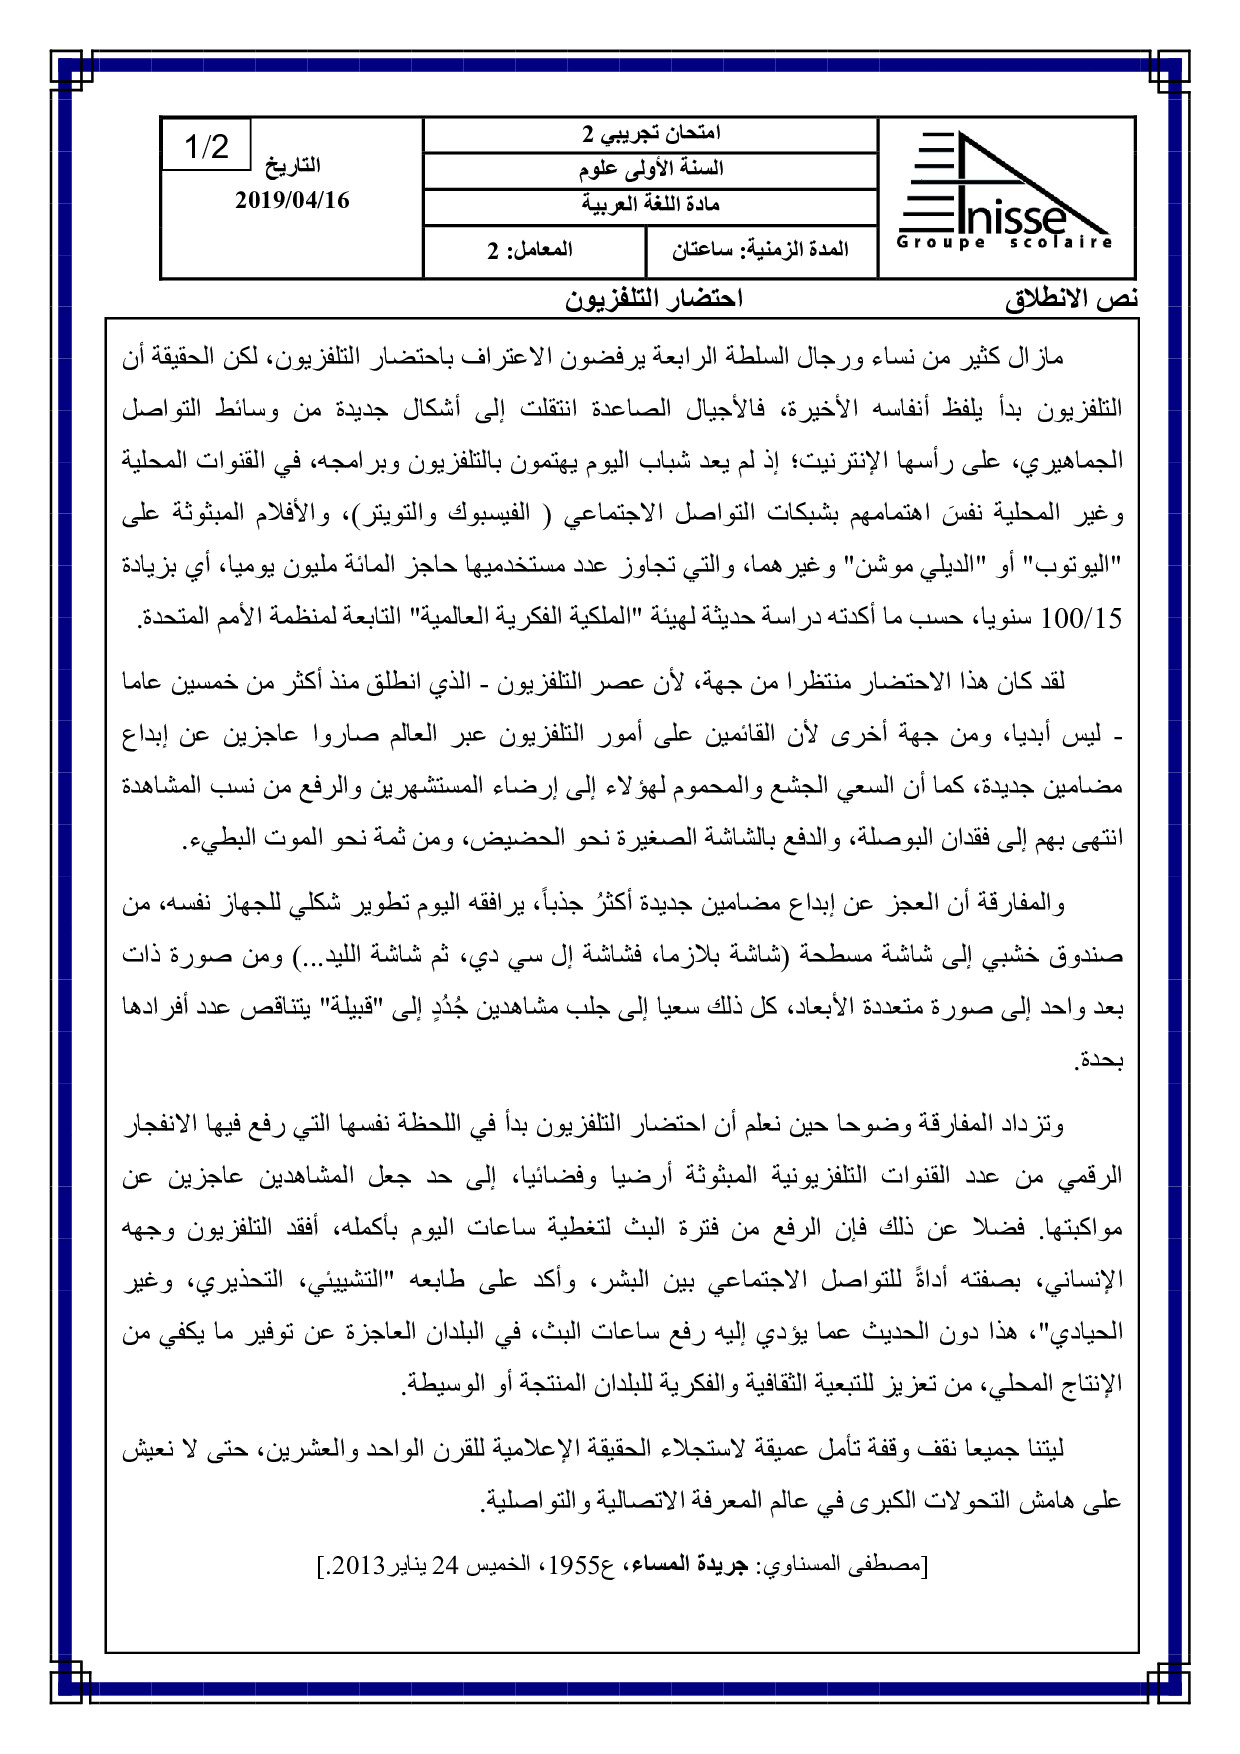 Anisse
Groupe scolaire
امتحان تجريبي 2
السنة الأولى علوم
مادة اللغة العربية
المدة الزمنية: ساعتان
المعامل: 2
1/2
التاريخ
2019/04/16
نص الانطلاق
احتضار التلفزيون
مازال كثير من نساء ورجال السلطة الرابعة يرفضون الاعتراف باحتضار التلفزيون، لكن الحقيقة أن
التلفزيون بدأ يلفظ أنفاسه الأخيرة، فالأجيال الصاعدة انتقلت إلى أشكال جديدة من وسائط التواصل
الجماهيري، على رأسها الإنترنيت؛ إذ لم يعد شباب اليوم يهتمون بالتلفزيون وبرامجه، في القنوات المحلية
وغير المحلية نفسَ اهتمامهم بشبكات التواصل الاجتماعي ( الفيسبوك والتويتر)، والأفلام المبثوثة على
"اليوتوب" أو "الديلي موشن" وغيرهما، والتي تجاوز عدد مستخدميها حاجز المائة مليون يوميا، أي بزيادة
100/15 سنويا، حسب ما أكدته دراسة حديثة لهيئة "الملكية الفكرية العالمية" التابعة لمنظمة الأمم المتحدة.
لقد كان هذا الاحتضار منتظرا من جهة، لأن عصر التلفزيون - الذي انطلق منذ أكثر من خمسين عاما
- ليس أبديا، ومن جهة أخرى لأن القائمين على أمور التلفزيون عبر العالم صاروا عاجزين عن إبداع
مضامين جديدة، كما أن السعي الجشع والمحموم لهؤلاء إلى إرضاء المستشهرين والرفع من نسب المشاهدة
انتهى بهم إلى فقدان البوصلة، والدفع بالشاشة الصغيرة نحو الحضيض، ومن ثمة نحو الموت البطيء.
والمفارقة أن العجز عن إبداع مضامين جديدة أكثرُ جذباً، يرافقه اليوم تطوير شكلي للجهاز نفسه، من
صندوق خشبي إلى شاشة مسطحة (شاشة بلازما، فشاشة إل سي دي، ثم شاشة الليد...) ومن صورة ذات
بعد واحد إلى صورة متعددة الأبعاد، كل ذلك سعيا إلى جلب مشاهدين جُدُدٍ إلى "قبيلة" يتناقص عدد أفرادها
بحدة.
وتزداد المفارقة وضوحا حين نعلم أن احتضار التلفزيون بدأ في اللحظة نفسها التي رفع فيها الانفجار
الرقمي من عدد القنوات التلفزيونية المبثوثة أرضيا وفضائيا، إلى حد جعل المشاهدين عاجزين عن
مواكبتها. فضلا عن ذلك فإن الرفع من فترة البث لتغطية ساعات اليوم بأكمله، أفقد التلفزيون وجهه
الإنساني، بصفته أداةً للتواصل الاجتماعي بين البشر، وأكد على طابعه "التشييئي، التحذيري، وغير
الحيادي"، هذا دون الحديث عما يؤدي إليه رفع ساعات البث، في البلدان العاجزة عن توفير ما يكفي من
الإنتاج المحلي، من تعزيز للتبعية الثقافية والفكرية للبلدان المنتجة أو الوسيطة.
ليتنا جميعا نقف وقفة تأمل عميقة لاستجلاء الحقيقة الإعلامية للقرن الواحد والعشرين، حتى لا نعيش
على هامش التحولات الكبرى في عالم المعرفة الاتصالية والتواصلية.
[مصطفى المسناوي: جريدة المساء، ع1955، الخميس 24 يناير2013.]